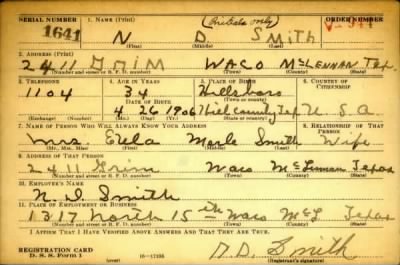 SERIAL NUMBER 1. NAME (Print) (Initials only) ORDER NUMBER
1641 N D. SMITH
(First) (Middle) (Last)
2. ADDRESS (Print)
2411 GRIM WACO MCLENNAN TEX.
(Number and street or R. F. D. number) (Town) (County) (State)
3. TELEPHONE 4. AGE IN YEARS 5. PLACE OF BIRTH 6. COUNTRY OF CITIZENSHIP
1104 34 Hillsboro
DATE OF BIRTH (Town or county)
4 26 1906 Hill County Tex U S A
(Exchange) (Number) (Mo.) (Day) (Yr.) (State or country)
7. NAME OF PERSON WHO WILL ALWAYS KNOW YOUR ADDRESS 8. RELATIONSHIP OF THAT PERSON
Mrs. Merle Smith Wife
(Mr., Mrs., Miss) (First) (Middle) (Last)
9. ADDRESS OF THAT PERSON
2411 Grim Waco McLennan Texas
(Number and street or R. F. D. number) (Town) (County) (State)
10. EMPLOYER'S NAME
Smith
11. PLACE OF EMPLOYMENT OR BUSINESS
1317 North 15th Waco McL Texas
(Number and street or R. F. D. number) (Town) (County) (State)
I AFFIRM THAT I HAVE VERIFIED ABOVE ANSWERS AND THAT THEY ARE TRUE.
REGISTRATION CARD
D. S. S. Form 1 16-17105 N.D. Smith